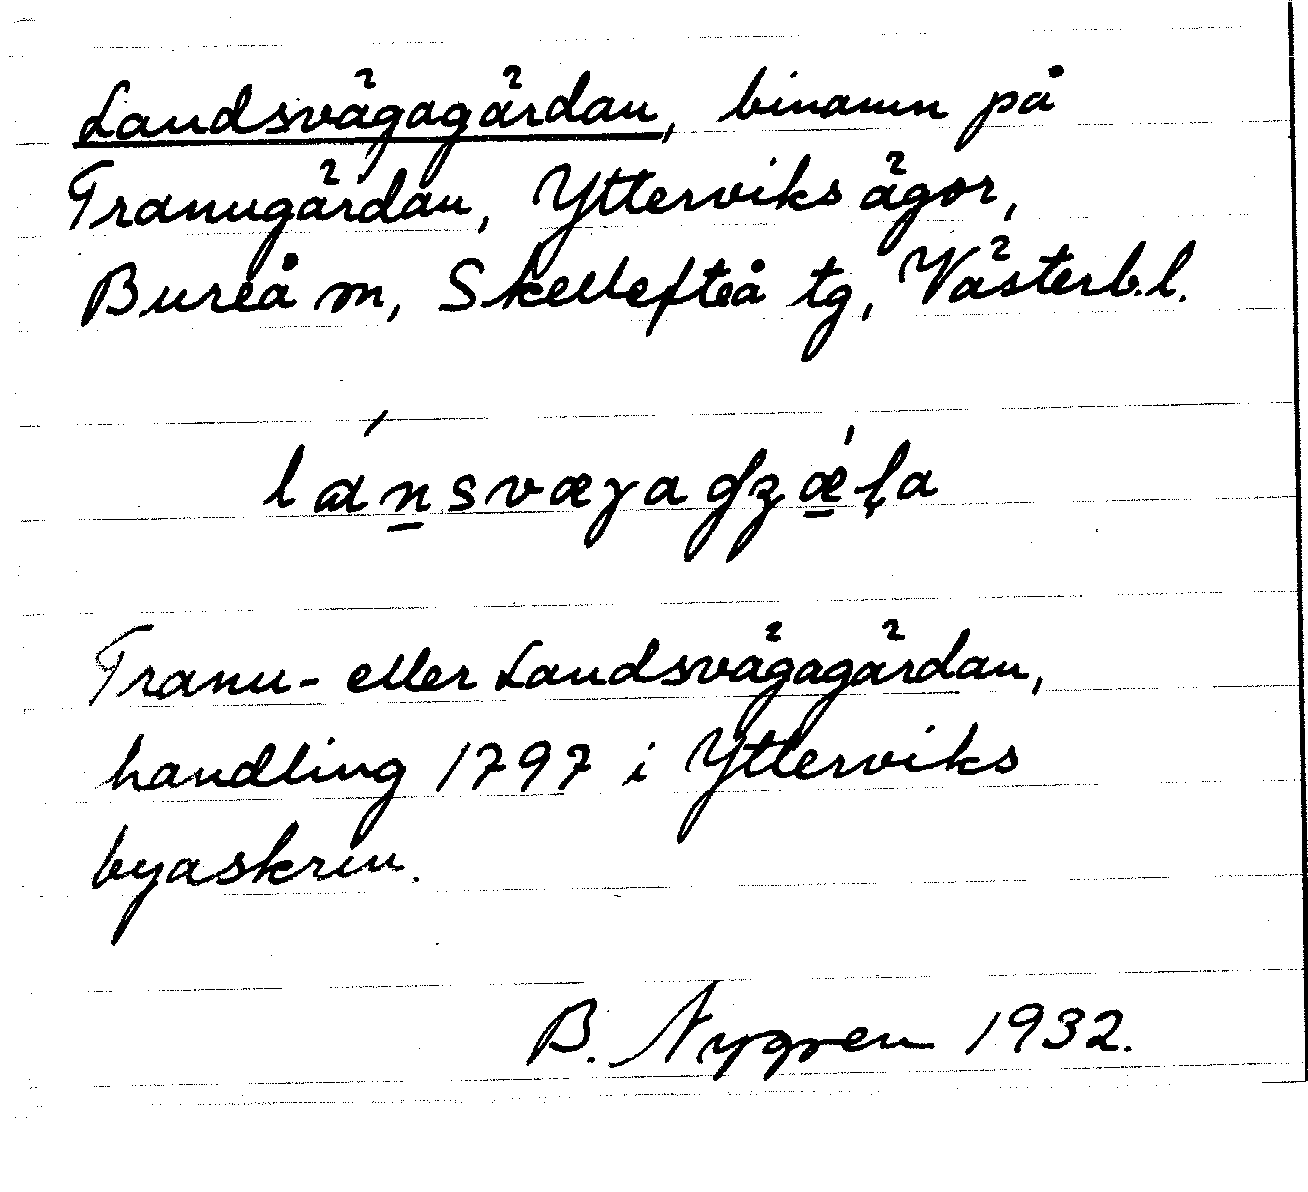 Landsvägagärdan, binamn på
Tranugärdan, Ytterviks ägor,
Bureå m, Skellefteå tg, Västerb.l.
Tranu- eller Landsvägagärdan,
handling 1797 i Ytterviks
byaskrin.
B. Nygren 1932.